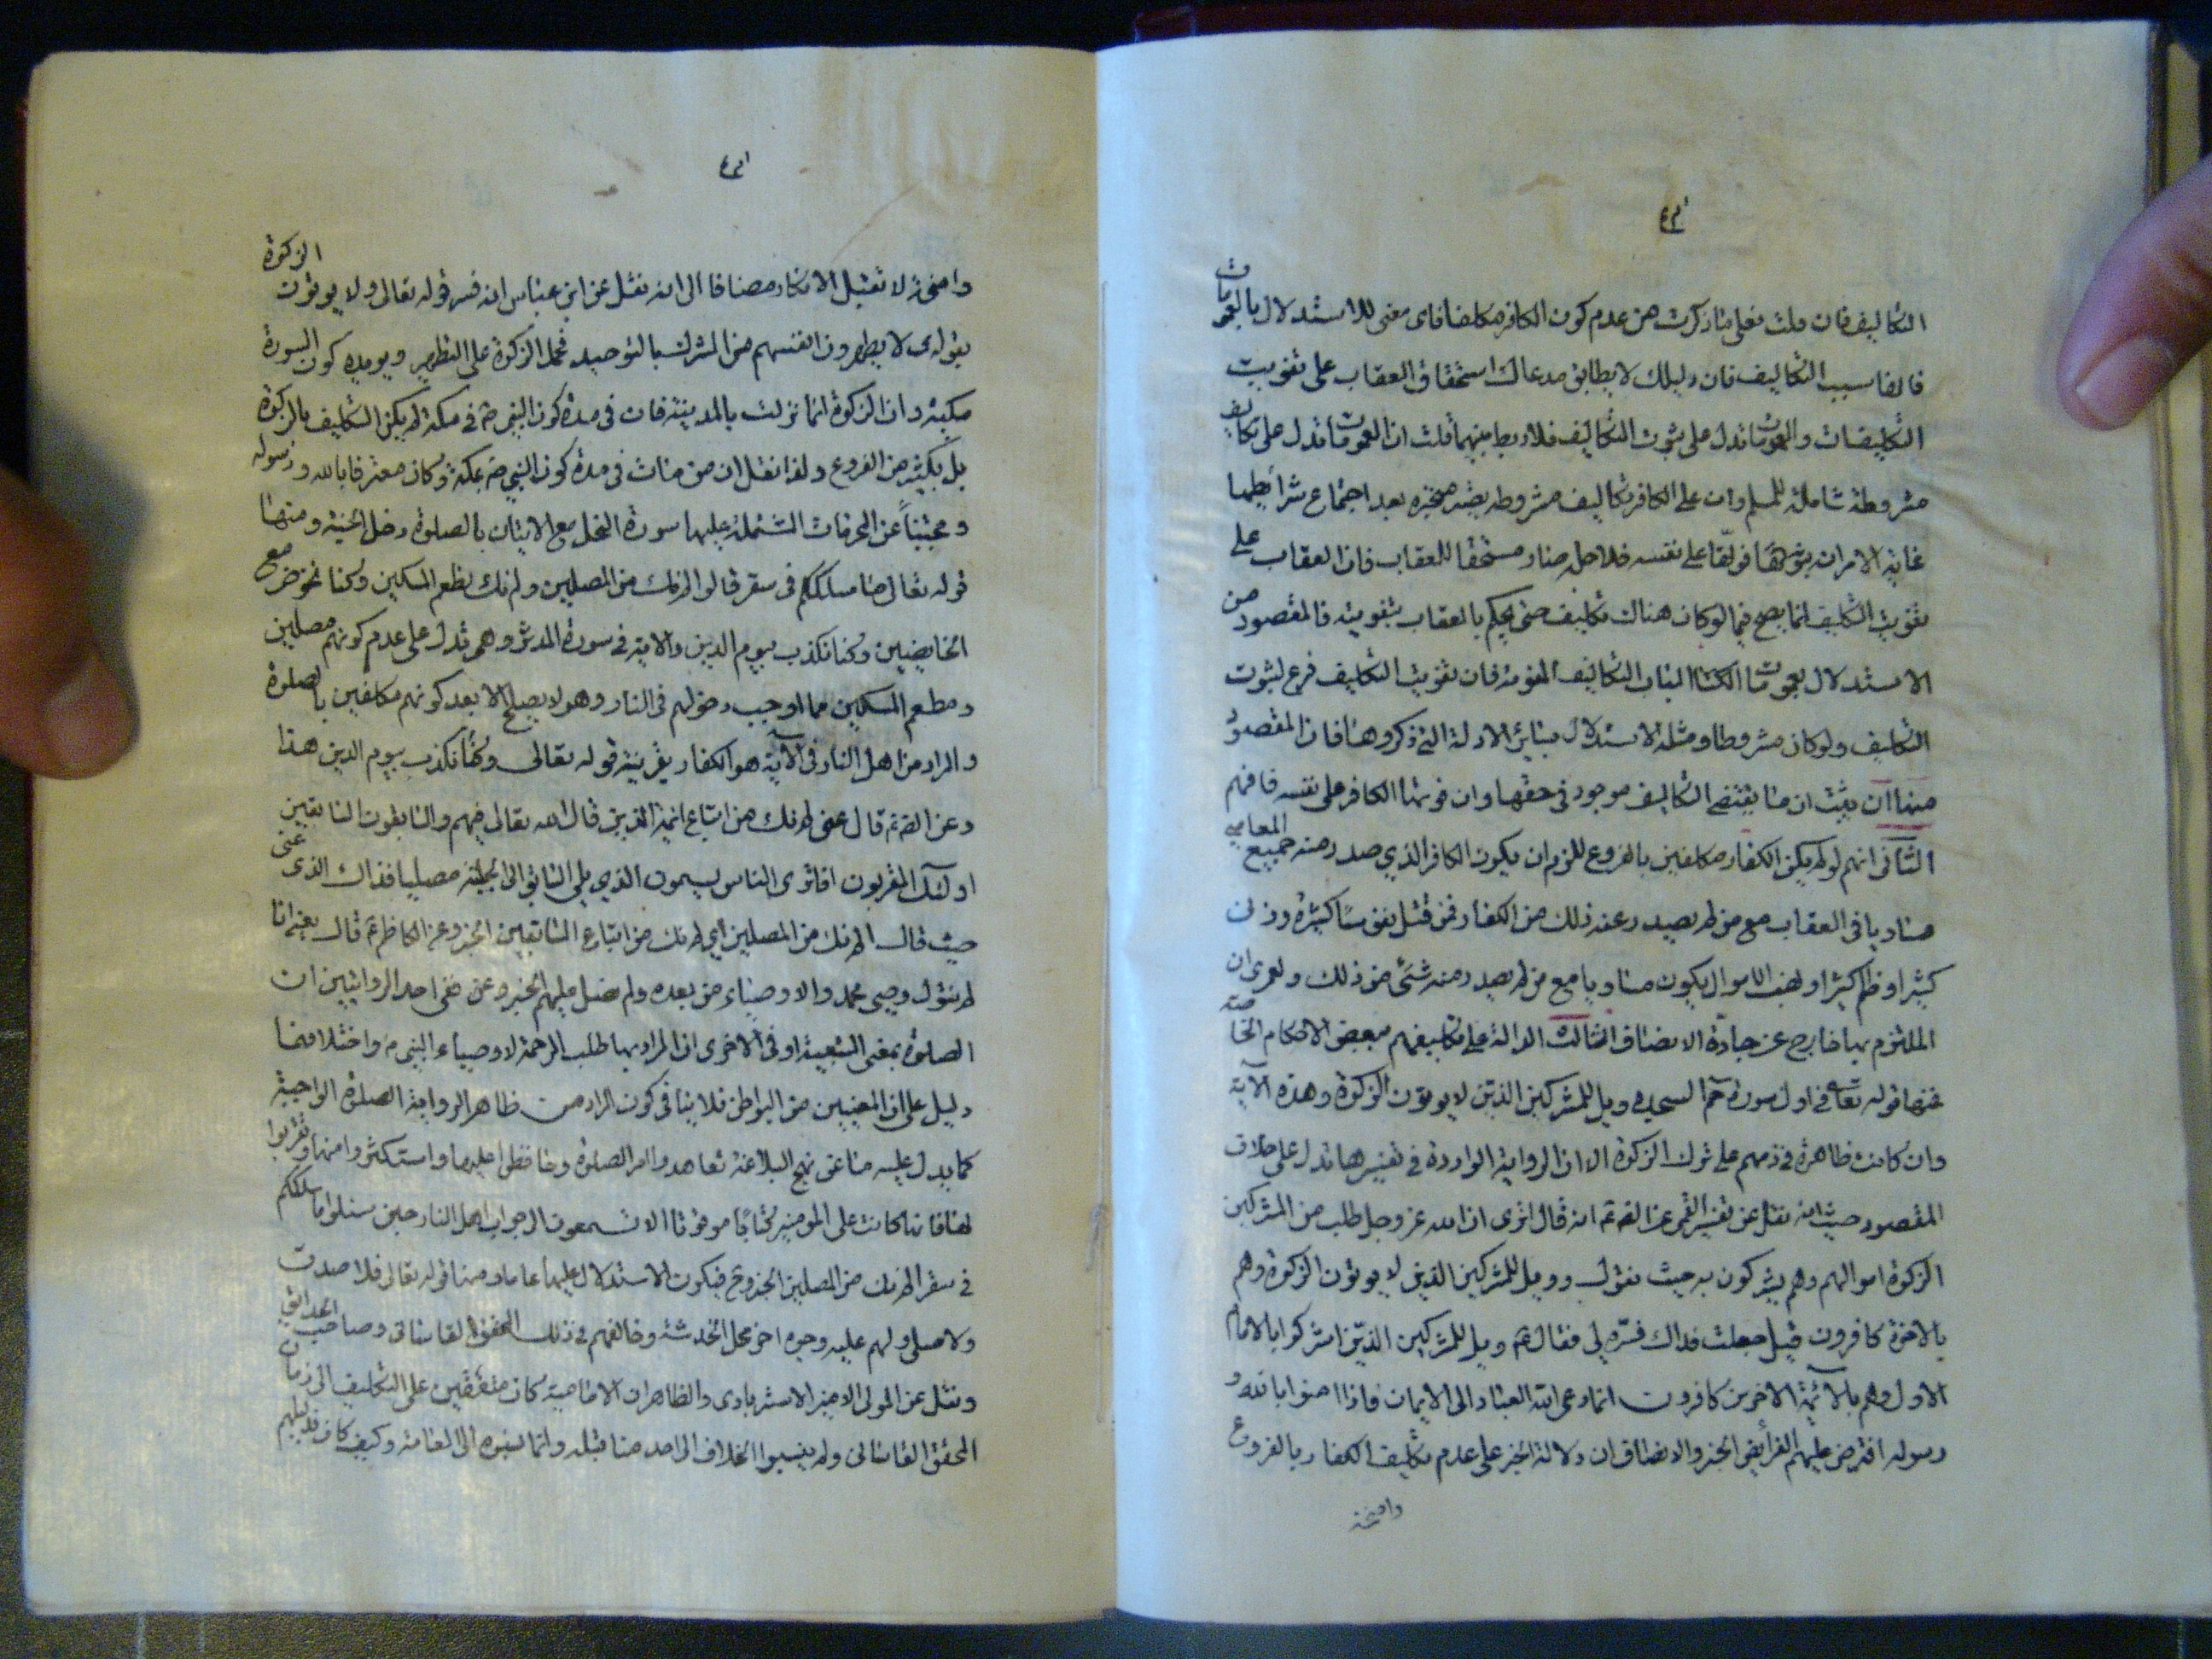 التكاليف فان قلت فعلى ما ذكرت من عدم كون الكافر مكلفا فاى معنى للاستدلال بالعمومات
فالفا سبب التكاليف فان دليلك لا يطابق مدعاك استحقاق العقاب على تفويت
التكليفات والعمومات تدل على ثبوت التكاليف فلا ربط بينهما قلت ان العمومات تدل على تكاليف
مشروطة شاملة للمسلم وان على الكافر تكاليف مشروطه يصير منجزه بعد اجتماع شرائطها
غاية الامر انه بترکها فوتها على نفسه فلاجله صار مستحقا للعقاب فان العقاب على
تفويت التكليف انما يصح فيما لو كان هناك تكليف حتى يحكم بالعقاب بتفويته فالمقصود من
الاستدلال بعمومات الكتاب اثبات التكاليف المفوته فان تفويت التكليف فرع لثبوت
التكليف ولو كان مشروطا ومثله الاستدلال بسائر الادلة التى ذكروها فان المقصود
منها ان يثبت ان ما يقتضى التكاليف موجود فى حقها وان فوتها الكافر على نفسه فافهم
الثانى انهم لو لم يكن الكفار مكلفين بالفروع للزم ان يكون الكافر الذي صدر منه جميع المعاصي
مساويا فى العقاب مع من لم يصدر عنه ذلك من الكفار فمن قتل نفوسا كثيرة وزنى
كثيرا وظلم كثيرا ونهب الاموال يكون مساويا مع من لم يصدر منه شئ من ذلك ولعمرى ان
الملتزم بها خارج عن جادة الانصاف الثالث الدالة على تكليفهم ببعض الاحكام الخاصة
فمنها قوله تعالى فى اول سورة حم السجده وويل للمشركين الذين لا يوتون الزكوة وهذه الآية
وان كانت ظاهرة فى ذمهم على ترك الزكوة الا ان الرواية الواردة فى تفسيرها تدل على خلاف
المقصود حيث انه نقل عن تفسير القمى عن الصادق ع انه قال اترى ان الله عز وجل طلب من المشركين
الزكوة اموالهم وهم يشركون به حيث يقول وويل للمشركين الذين لا يوتون الزكوة وهم
بالاخرة كافرون قيل جعلت فداك فسره لى فقال ع ويل للمشركين الذين اشركوا بالامام
الاول وهم بالائمة الاخرين كافرون انما دعى الله العباد الى الايمان فاذا امنوا بالله و
رسوله افترض عليهم الفرائض الخبر والانصاف ان دلالة الخبر على عدم تكليف الكفار بالفروع
واضحة
واضحة لا تقبل الانكار مضافا الى انه نقل عن ابن عباس انه فسر قوله تعالى ولا يوتون الزكوة
بقوله اى لا يطهرون انفسهم من الشرك بالتوحيد فحمل الزكوة على التطهير ويويده كون السورة
مكية وان الزكوة انما نزلت بالمدينة فان فى مدة كون النبى ص فى مكة لم يكن التكليف بالزكوة
بل بكثير من الفروع ولذا نقل ان من مات فى مدة كون النبي ص بمكة وكان معترفا بالله ورسوله
ومجتنباً عن المحرمات المشتملة عليها سورة النحل مع الاتيان بالصلوة دخل الجنة ومنها
قوله تعالى ما سلككم فى سقر قالوا لم نك من المصلين ولم نك نطعم المسكين وكنا نخوض مع
الخايضين وكنا نكذب بيوم الدين والاية فى سورة المدثر وهى تدل على عدم كونهم مصلين
ومطعم المسكين مما اوجب دخولهم فى النار وهو لا يصلح الا بعد كونهم مكلفين بالصلوة
والمراد من اهل النار فى الآية هو الكفار بقرينة قوله تعالى وكنا نكذب بيوم الدين هذا
وعن الصادق ع قال عنى لم نك من اتباع ائمة الذين قال الله تعالى فيهم والسابقون السابقون
اولئك المقربون اما ترى الناس يسمون الذي يلى السابق الى الحلبة مصليا فذاك الذى عنى
حيث قال لم نك من المصلين اي لم نك من اتباع السابقين الخبر وعن الكاظم ع قال يعنى انا
لم نتول وصى محمد والاوصياء من بعده ولم نصل عليهم الخبر وعن فى احد الروايتين ان
الصلوة بمعنى التبعية وفى الاخرى ان المراد بها طلب الرحمة لاوصياء النبى ص واختلافهما
دليل على ان المعنيين من البواطن فلا ينافى كون المراد من ظاهر الرواية الصلوة الواجبة
كما يدل عليه ما عن نهج البلاغة تعاهدوا امر الصلوة وحافظوا عليها واستكثروا منها وتقربوا
بها فانها كانت على المومنين كتابا موقوتا الا تسمعون الى جواب اهل النار حين سئلوا ما سلككم
فى سقر لم نك من المصلين الخبر وح فيكون الاستدلال عليها عاما ومنها قوله تعالى فلا صدق
ولا صلى ولهم عليه وجوه اخر محل الخدشة وخالفهم فى ذلك المحقق القاسانى وصاحب الحدائق
ونقل عن المولى الامين الاسترابادى والظاهر ان الامامية كان متفقين على التكليف الى زمان
المحقق القاسانى ولم ينسبوا الخلاف الى احد منا قبله وانما نسبوه الى العامة وكيف كان فدليلهم